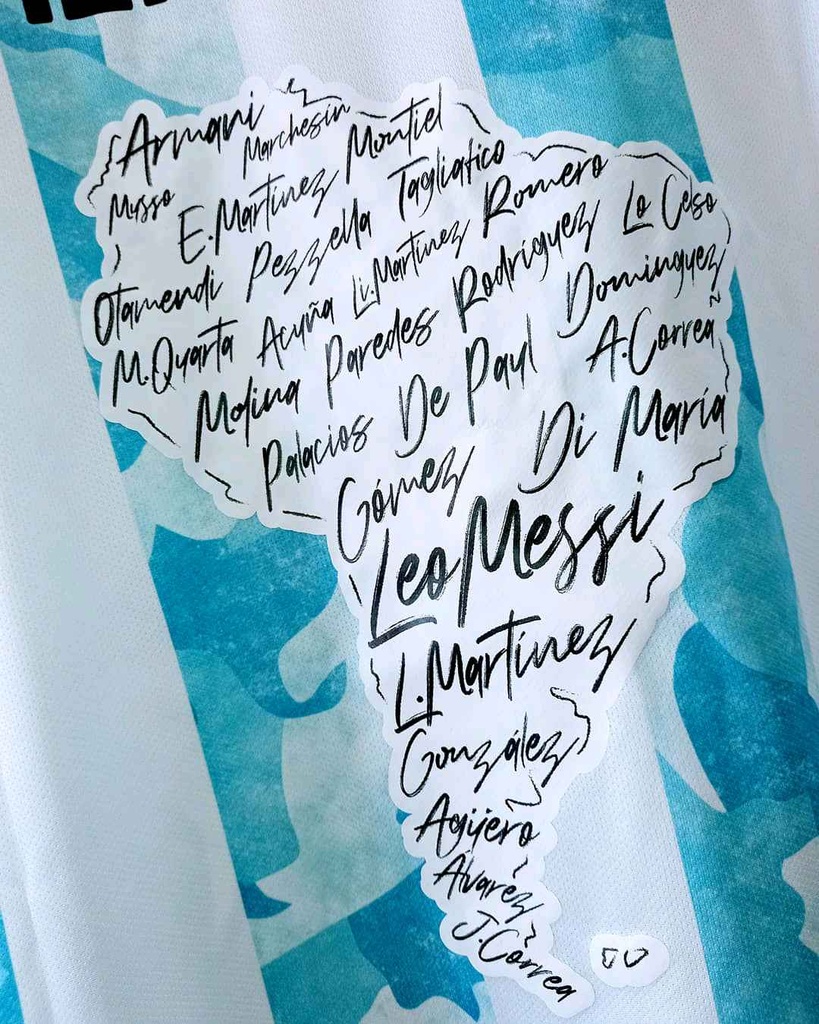 Armani
Marchesín
Musso
E.Martínez Montiel
Otamendi Pezzella Tagliafico
M.Quarta Acuña Li.Martínez Romero
Molina Paredes Rodríguez Lo Celso
Palacios De Paul Domínguez
A.Correa
Gómez Di María
Leo Messi
L.Martínez
González
Agüero
Álvarez
J.Correa